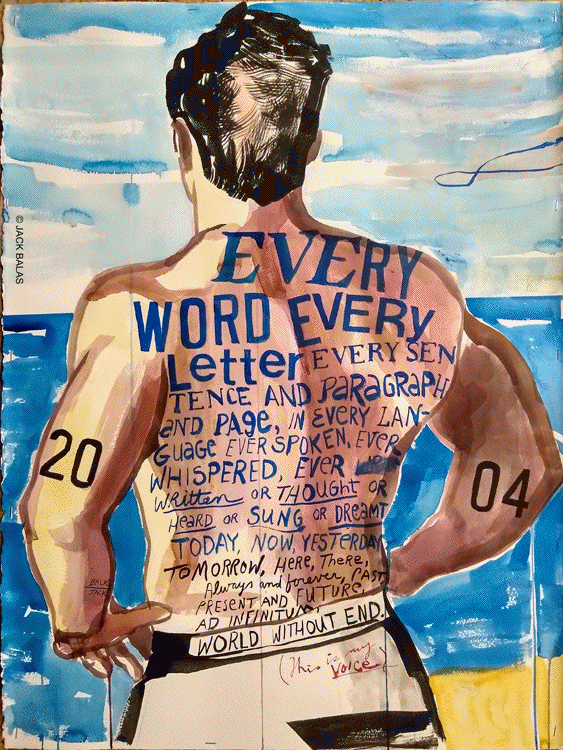 © JACK BALAS
EVERY
WORD EVERY
Letter EVERY SEN
TENCE AND PARAGRAPH
AND PAGE, IN EVERY LAN-
GUAGE EVER SPOKEN, EVER
WHISPERED, EVER
WRITTEN OR THOUGHT OR
HEARD OR SUNG OR DREAMT
TODAY, NOW, YESTERDAY,
TOMORROW, HERE, THERE,
Always and forever, PAST
PRESENT AND FUTURE,
AD INFINITUM,
WORLD WITHOUT END.
(This is my
VOICE)
20
04
BALAS
JACK